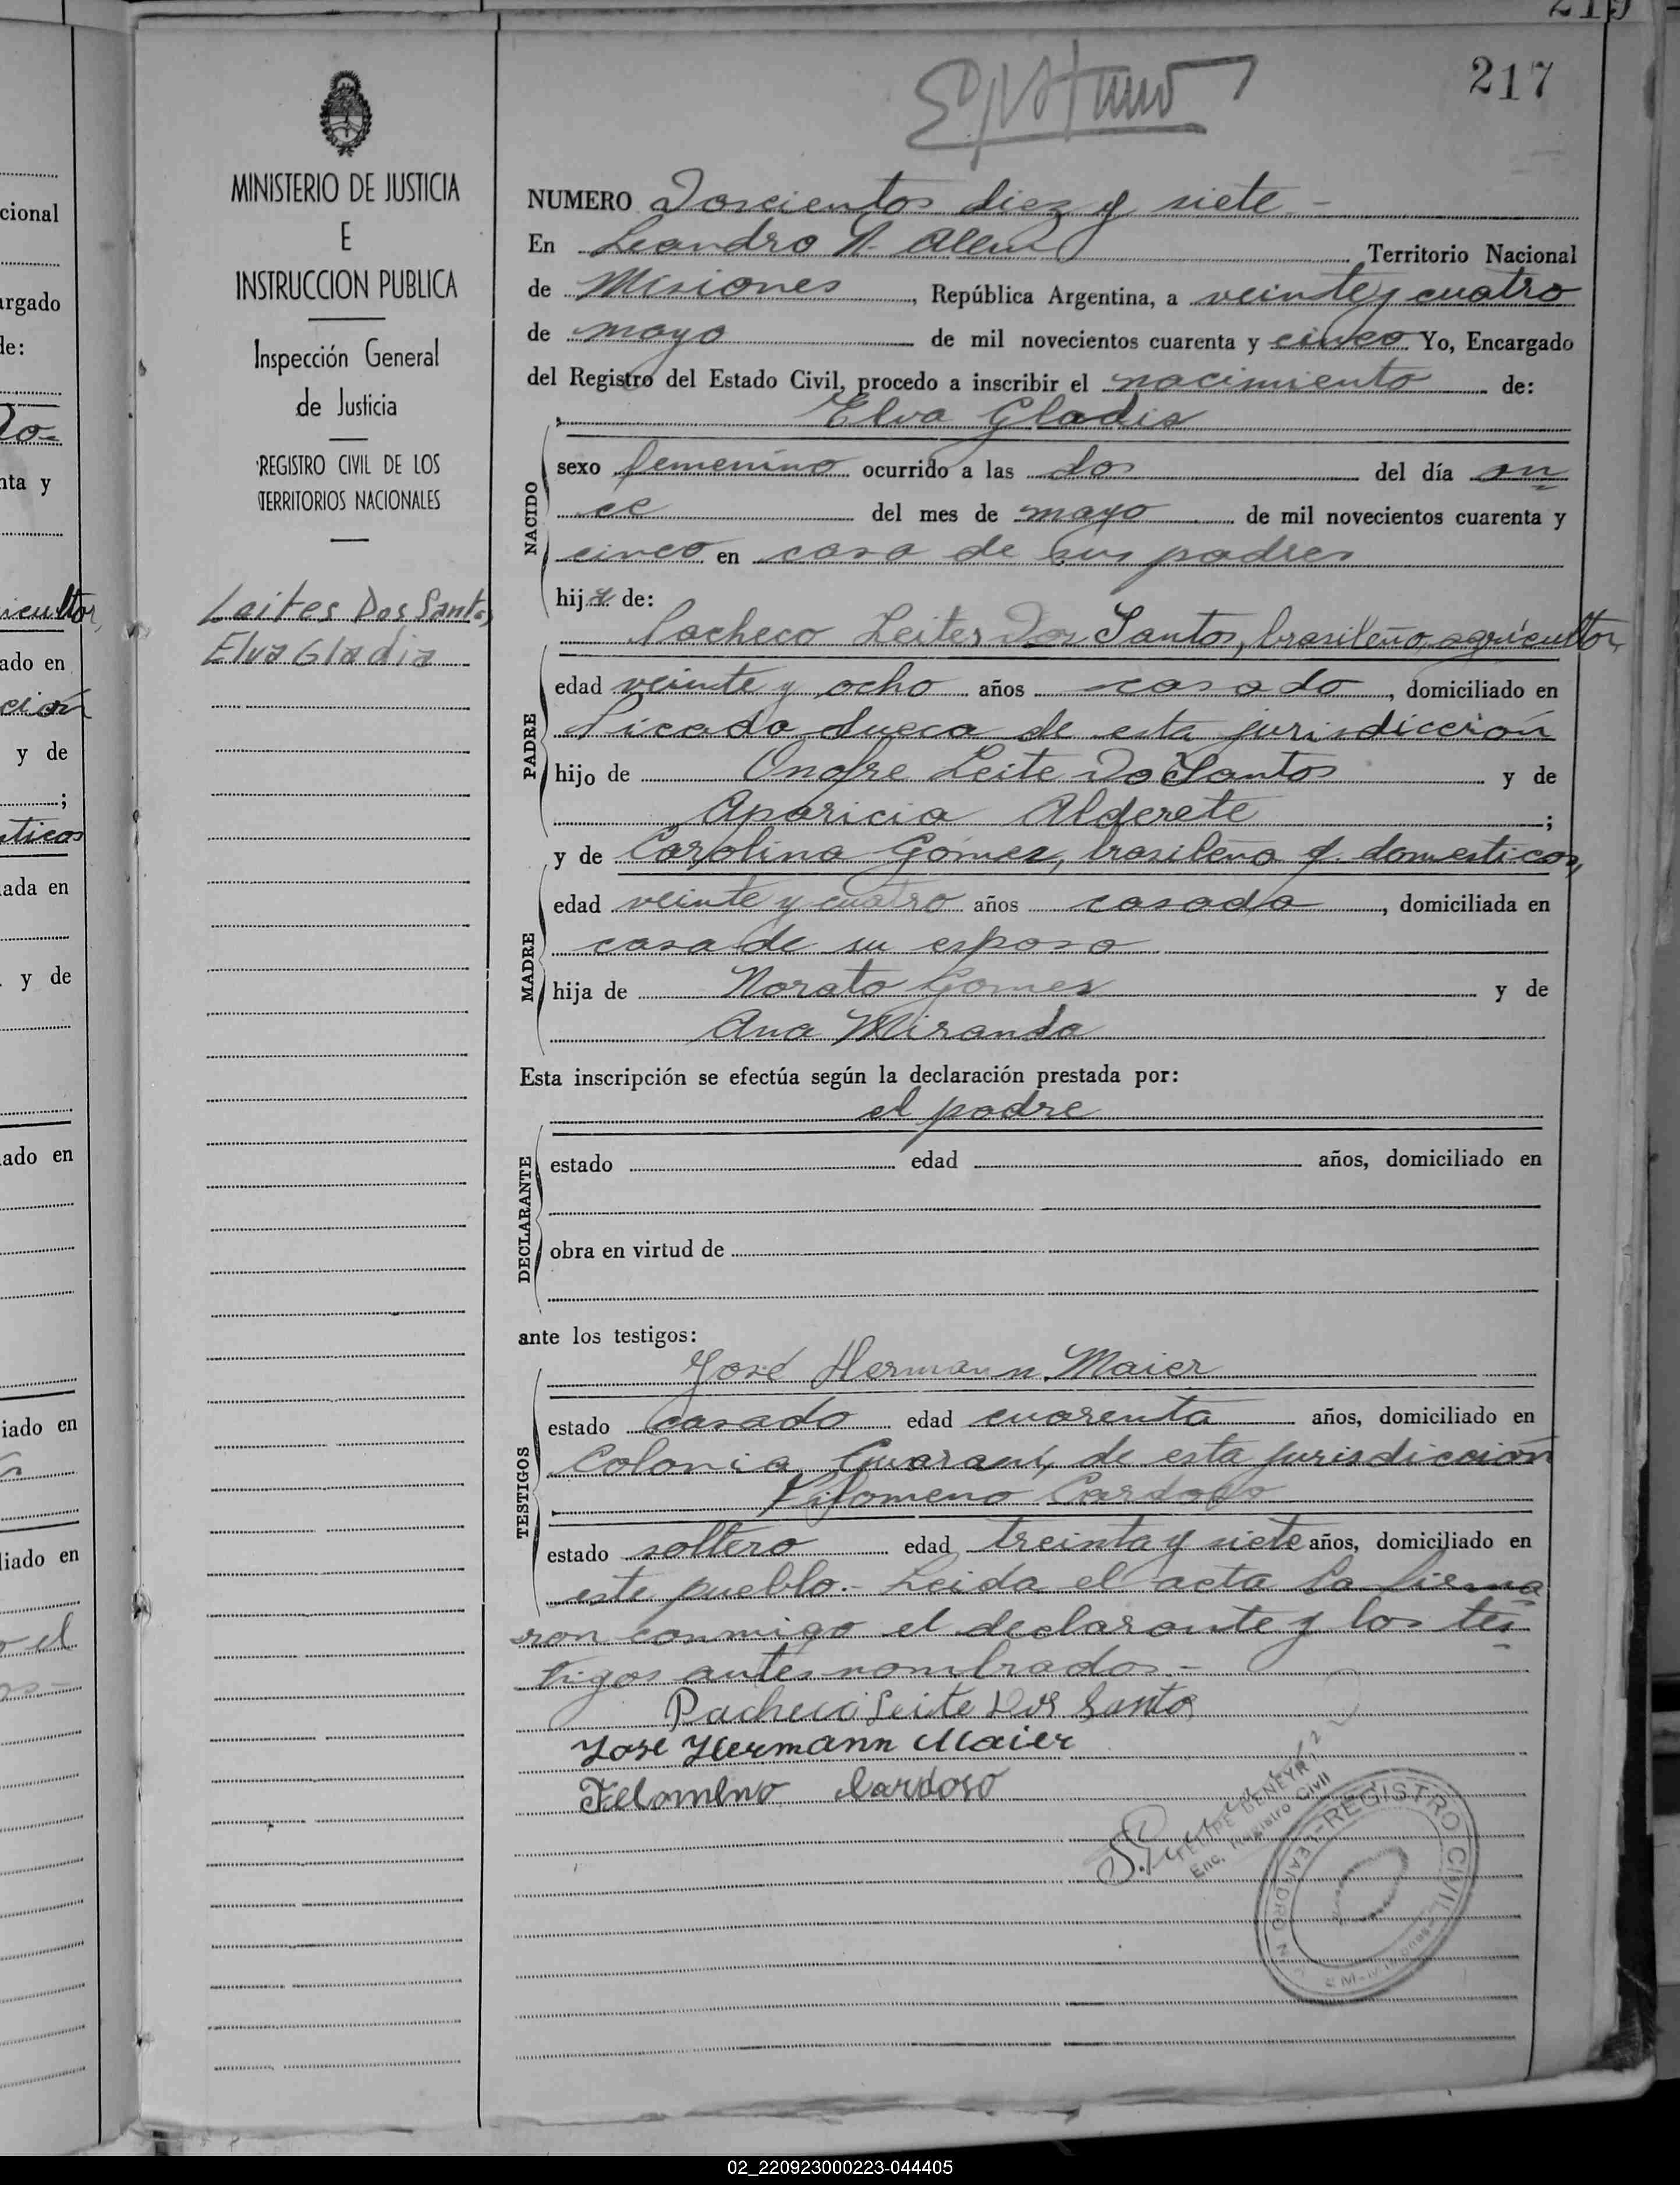 219
217
MINISTERIO DE JUSTICIA
E
INSTRUCCION PUBLICA
Inspección General
de Justicia
REGISTRO CIVIL DE LOS
TERRITORIOS NACIONALES
Leites Dos Santos,
Elva Gladis
NUMERO Doscientos diez y siete.-
En Leandro N. Alem Territorio Nacional
de Misiones, República Argentina, a veinte y cuatro
de mayo de mil novecientos cuarenta y cinco Yo, Encargado
del Registro del Estado Civil, procedo a inscribir el nacimiento de:
Elva Gladis
NACIDO
sexo femenino ocurrido a las dos del día on
ce del mes de mayo de mil novecientos cuarenta y
cinco en casa de sus padres
hija de:
PADRE
Pacheco Leites Dos Santos, brasileño, agricultor,
edad veinte y ocho años casado, domiciliado en
Picada Sueca de esta jurisdicción
hijo de Onofre Leite Do Santos y de
Aparicia Alderete;
MADRE
y de Carolina Gómez, brasileña q. domesticos,
edad veinte y cuatro años casada, domiciliada en
casa de su esposo
hija de Norato Gomes y de
Ana Miranda
Esta inscripción se efectúa según la declaración prestada por:
el padre
DECLARANTE
estado edad años, domiciliado en
obra en virtud de
ante los testigos:
TESTIGOS
José Hermann Maier
estado casado edad cuarenta años, domiciliado en
Colonia Guaraní, de esta jurisdicción
Filomeno Cardoso
estado soltero edad treinta y siete años, domiciliado en
este pueblo.- Leida el acta la firma
ron conmigo el declarante y los tes
tigos antes nombrados.-
Pacheco Leite Dos Santos
Jose Hermann Maier
Felomeno Cardoso
FELIPE BENEYR
Enc. Registro Civil
REGISTRO CIVIL
LEANDRO N.
cional
argado
de:
nta y
icultor,
ado en
ción
y de
;
sticos
ada en
y de
ado en
iado en
liado en
el
02_220923000223-044405